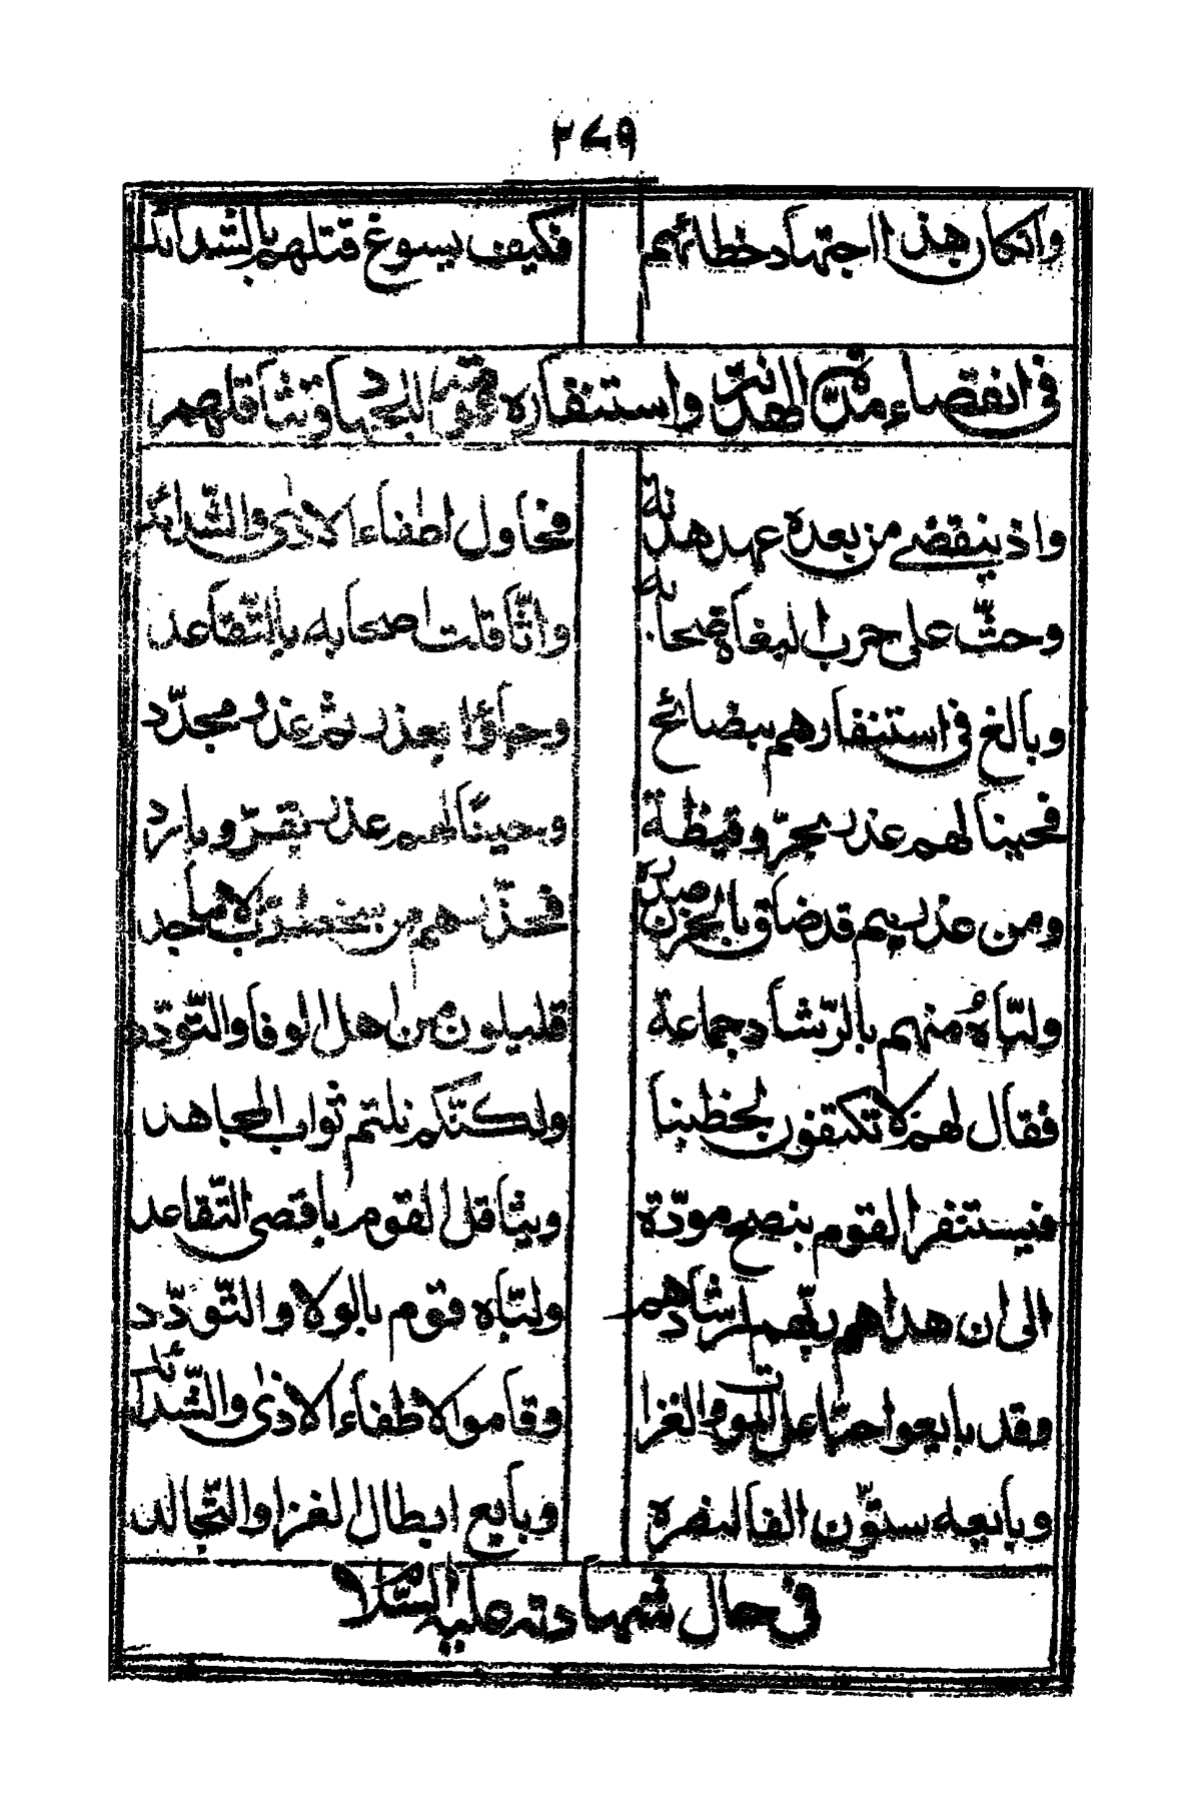 ٢٧٩
وانكان هذا اجتهاد خطائهم فكيف يسوغ قتلهم بالشدائد
فى انقضاء مدّة الهدنة واستنفاره قومه للجهاد وتثاقلهم
واذ ينقضى من بعده عهد هدنة فحاول اطفاء الاذى والشّدائد
وحثّ على حرب البغاة صحابه واثّاقلت اصحابه بالتّقاعد
وبالغ فى استنفارهم بنصائح وجاؤا بعذر ثم عذر مجدّد
فحينا لهم عذر بحرّ وقيظة وحينًا لهم عذر بقرّ وبارد
ومن عذرهم قد ضاق بالحزن صدره فحذّرهم من
ولبّاهُ منهم بالرّشاد جماعة قليلون من اهل الوفا والتّودّد
فقال لهم لا تكتفون بخطبنا ولكنّكم نلتم ثواب المجاهد
فيستنفر القوم بنصح مودّة ويثّاقل القوم باقصى التّقاعد
الى ان هداهم ربّهم لرشادهم ولبّاه قوم بالولا والتّودّد
وقد بايعوا حرّا على الموت والغزا وقاموا لاطفاء الاذى والشّدائد
وبايعه ستّون الفا لنصره وبايع ابطال الغزا والتّجالد
فى حال شهادته عليه السّلام